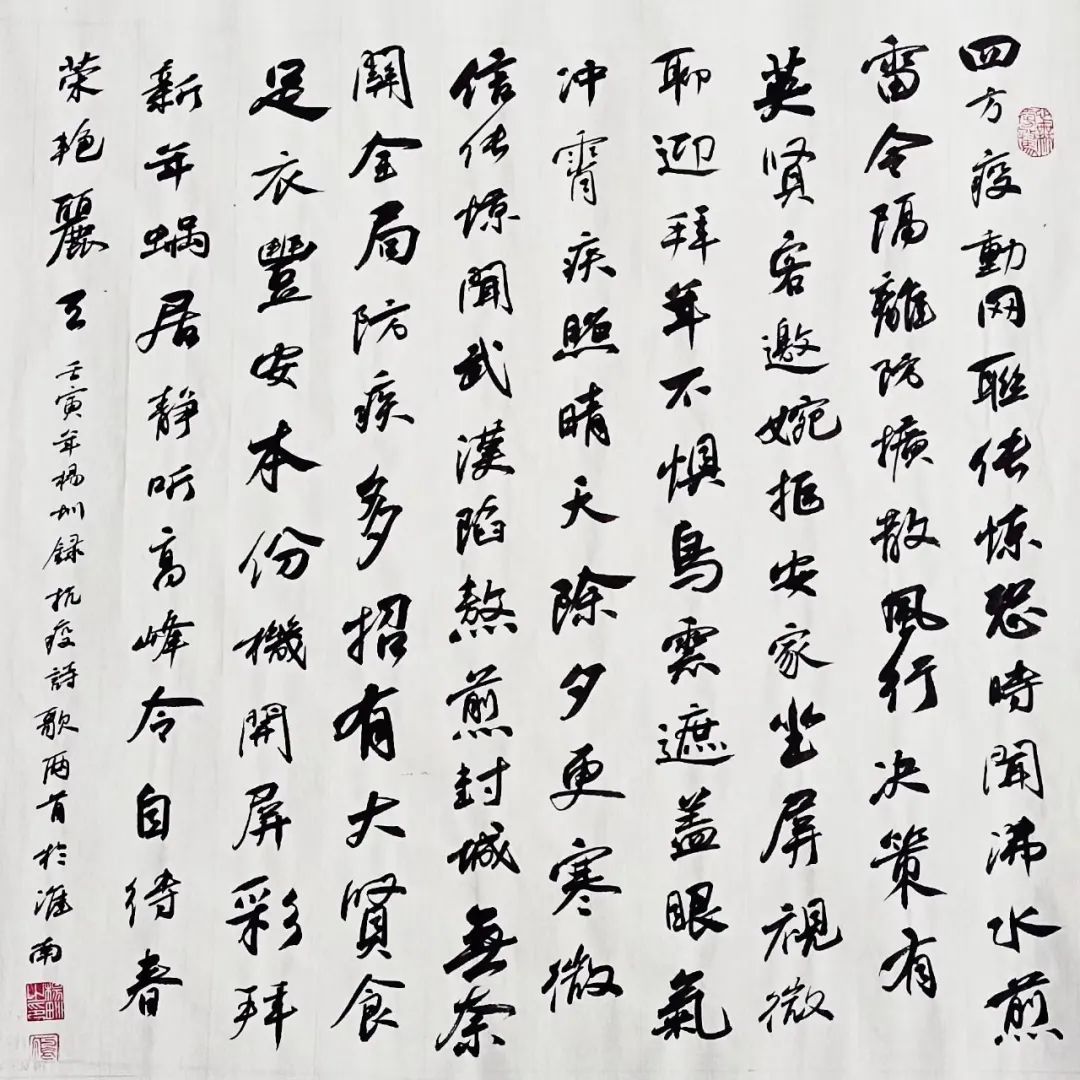 四方疫動网聯传惊恐時聞沸水煎
雷令隔離防擴散風行决策有
英贤客邀婉拒安家坐屏視微
聊迎拜年不惧烏雲遮盖眼氣
冲霄疾照晴天除夕更寒微
信传憭聞武漢陷熬煎封城無奈
開全局防疾多招有大贤食
足衣豐安本份機開屏彩拜
新年蝸居静听高峰令自待春
荣艳麗天
壬寅年楊圳録抗疫詩歌两首於淮南